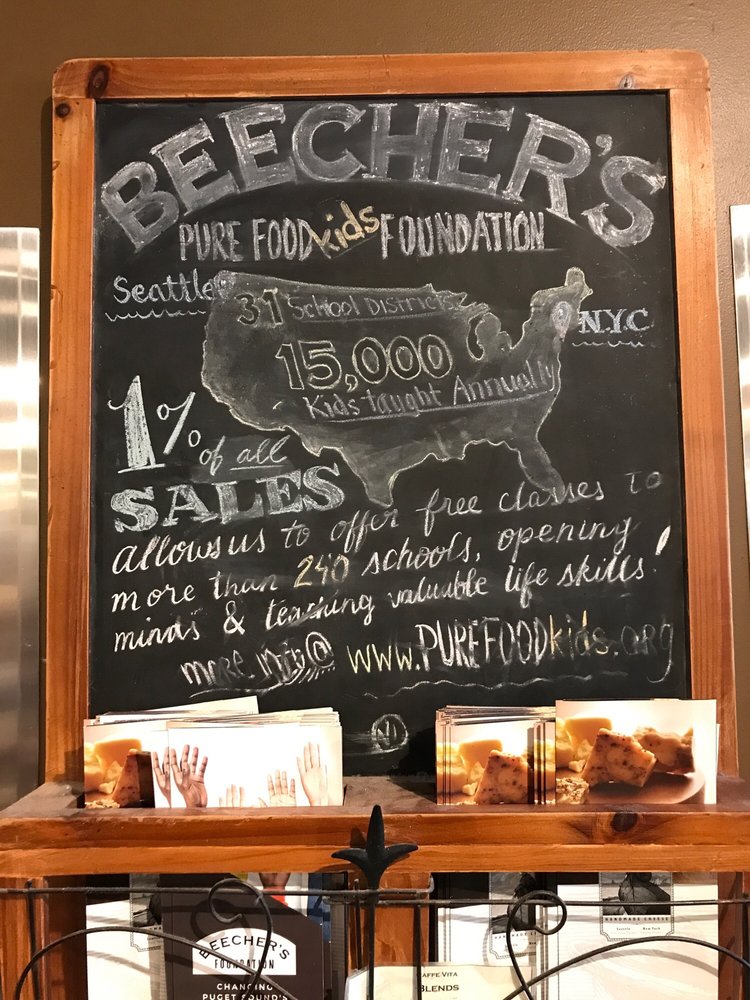 BEECHER'S
PURE FOOD kids FOUNDATION
Seattle
31 School Districts
N.Y.C
15,000
Kids taught Annually
1% of all
SALES
allows us to offer free classes to
more than 240 schools, opening
minds & teaching valuable life skills!
more info@ www.PUREFOODkids.org
BEECHER'S
FOUNDATION
CHANGING
PUGET SOUND'S
BLENDS
HANDMADE CHEESE
Seattle New York